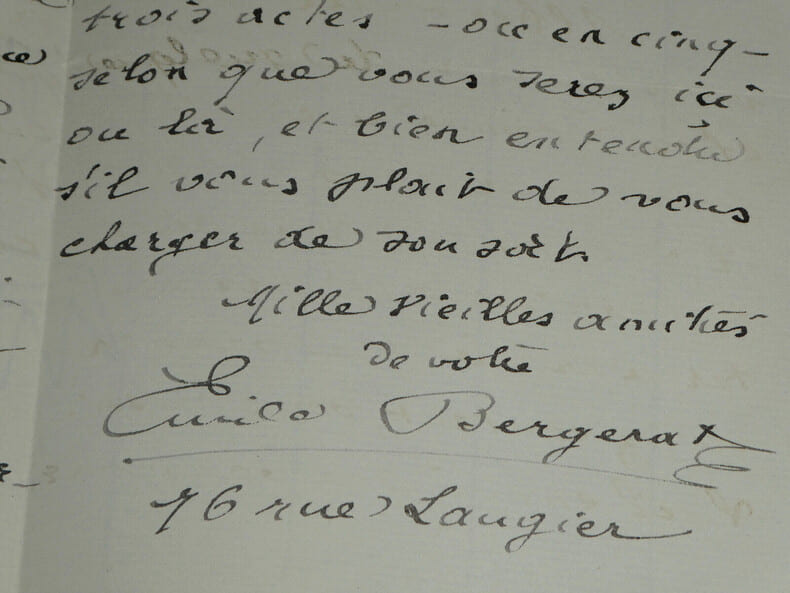 trois actes – ou en cinq –
selon que vous serez ici
ou là, et bien entendu
s'il vous plait de vous
charger de son sort.
Mille vieilles amitiés
de votre
Emile Bergerat
76 rue Laugier